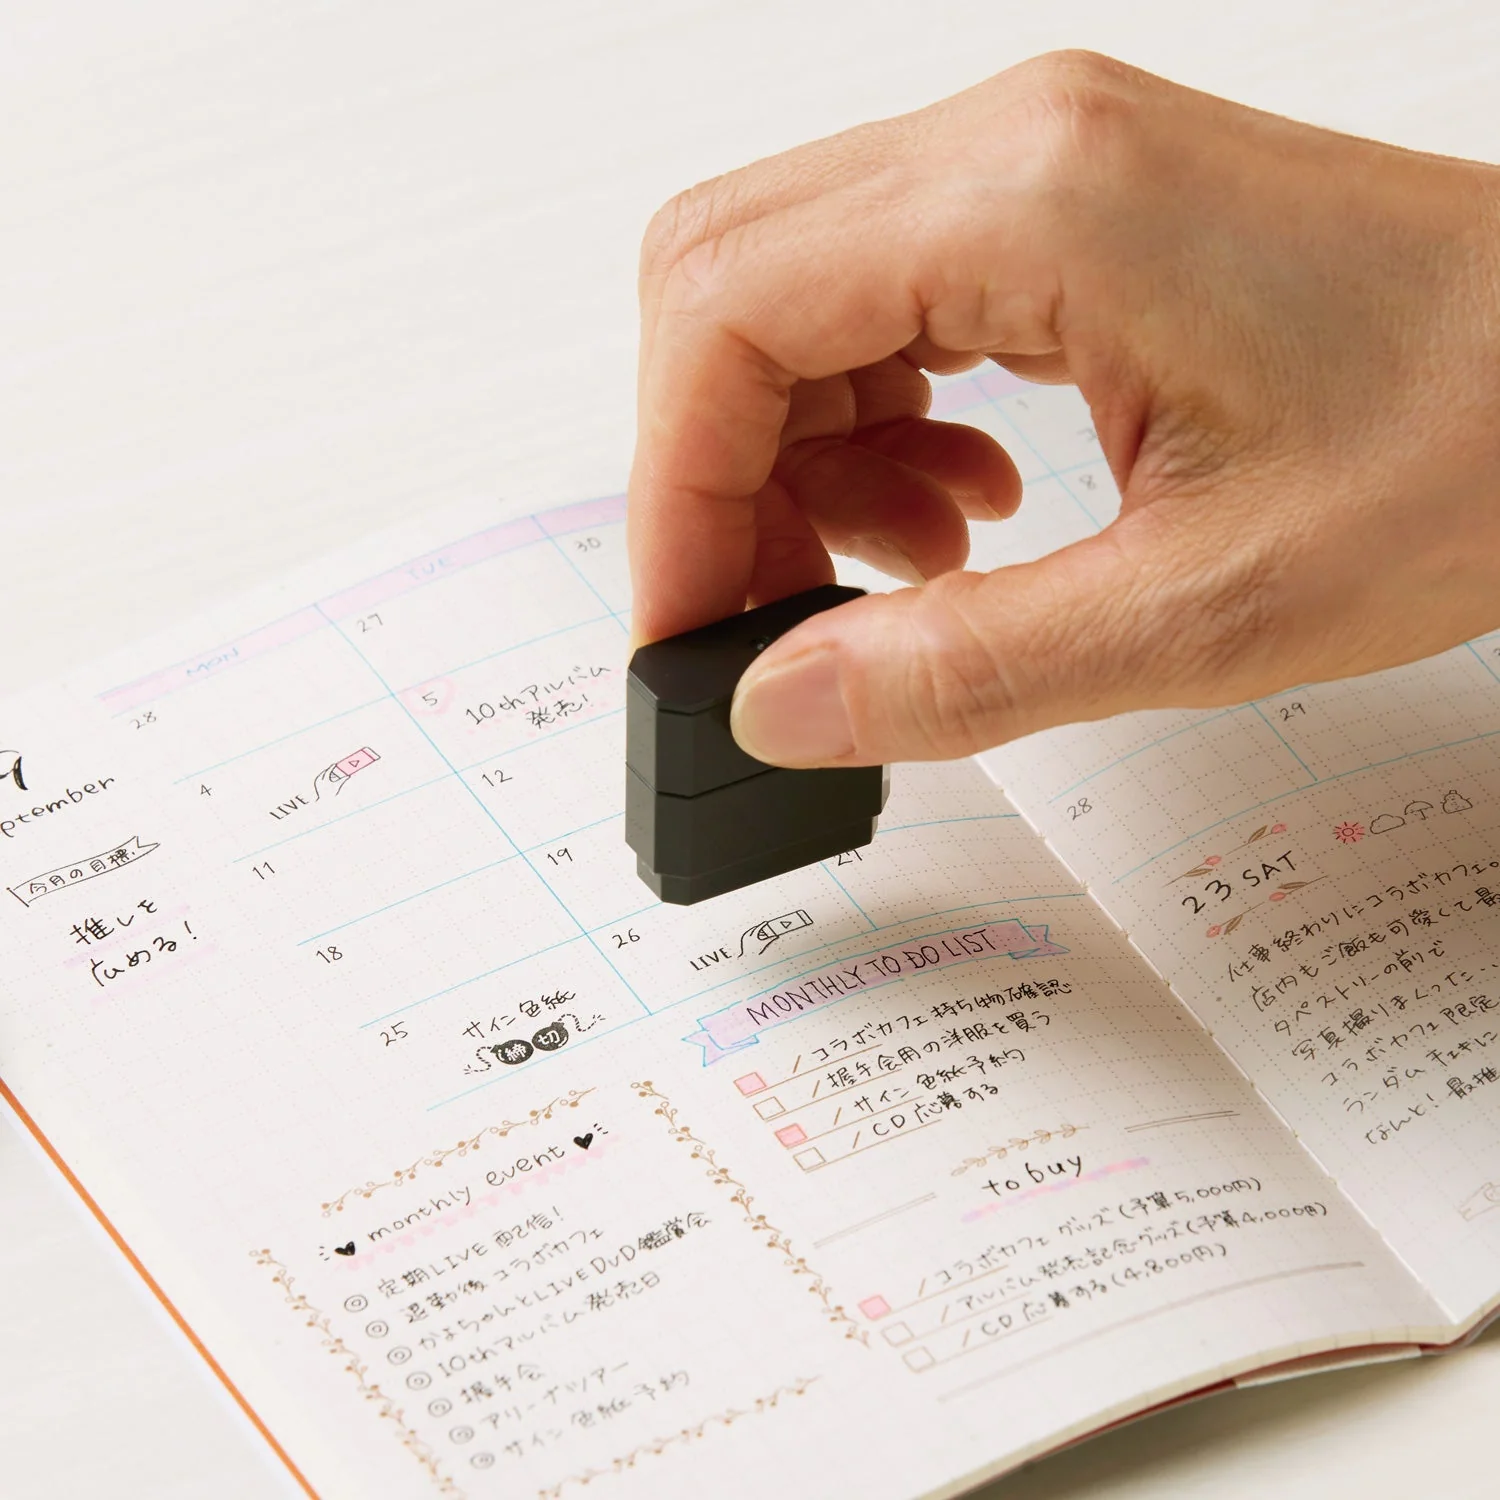 9
ptember
今月の目標!
推しを
広める!
MON
TUE
28
27
30
4
5
10thアルバム
発売!
LIVE
11
12
18
19
25
26
27
サイン色紙
締切
LIVE
1
8
28
29
monthly event
◎ 定期LIVE配信!
◎ 退勤後コラボカフェ
◎ かよちゃんとLIVE DVD鑑賞会
◎ 10thアルバム発売日
◎ 握手会
◎ アリーナツアー
◎ サイン色紙予約
MONTHLY TO DO LIST
/コラボカフェ持ち物確認
/握手会用の洋服を買う
/サイン色紙予約
/CD応募する
to buy
/コラボカフェグッズ(予算5,000円)
/アルバム発売記念グッズ(予算4,000円)
/CD応募する(4,800円)
23 SAT
仕事終わりにコラボカフェ。
店内もご飯も可愛くて最
タペストリーの前で
写真撮りまくった…
コラボカフェ限定
ランダムチェキに
なんと!最推